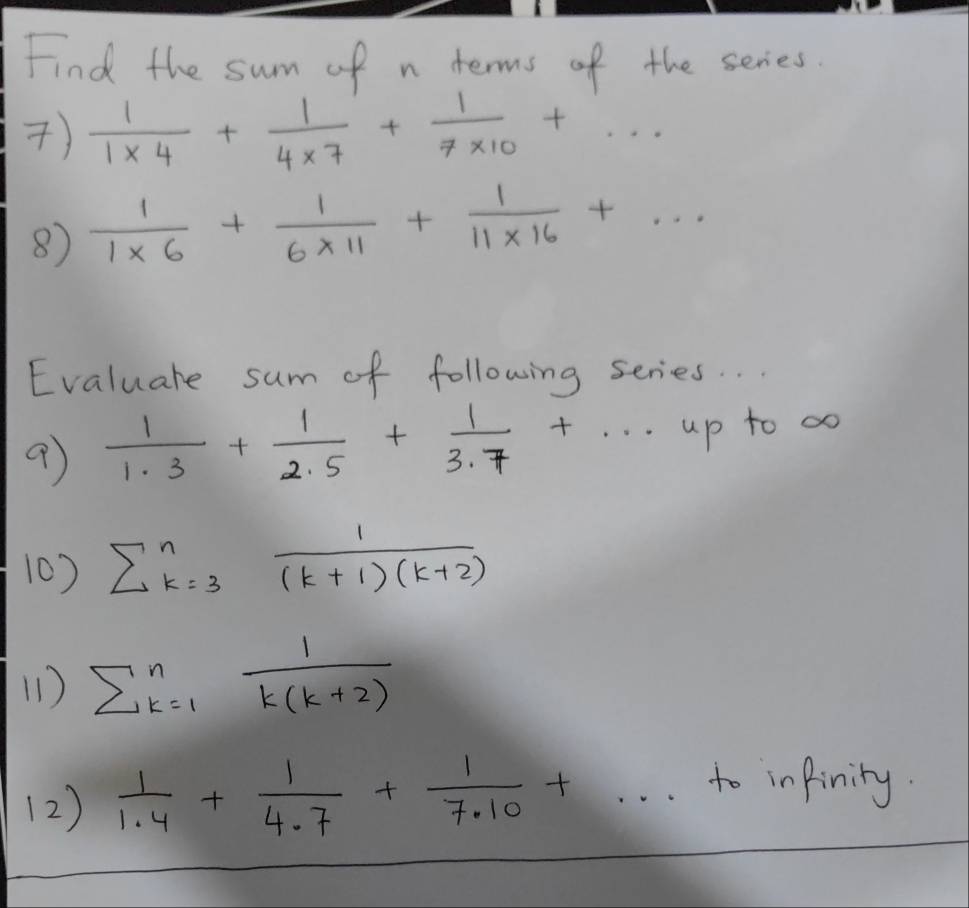 Find the sum of n terms of the series.
7) 1/(1 × 4) + 1/(4 × 7) + 1/(7 × 10) + ...
8) 1/(1 × 6) + 1/(6 × 11) + 1/(11 × 16) + ...
Evaluate sum of following series...
9) 1/(1 . 3) + 1/(2 . 5) + 1/(3 . 7) + ... up to ∞
10) ∑ⁿₖ₌₃ 1/((k + 1)(k+2))
11) ∑ⁿₖ₌₁ 1/(k(k+2))
12) 1/(1.4) + 1/(4.7) + 1/(7.10) + ... to infinity.